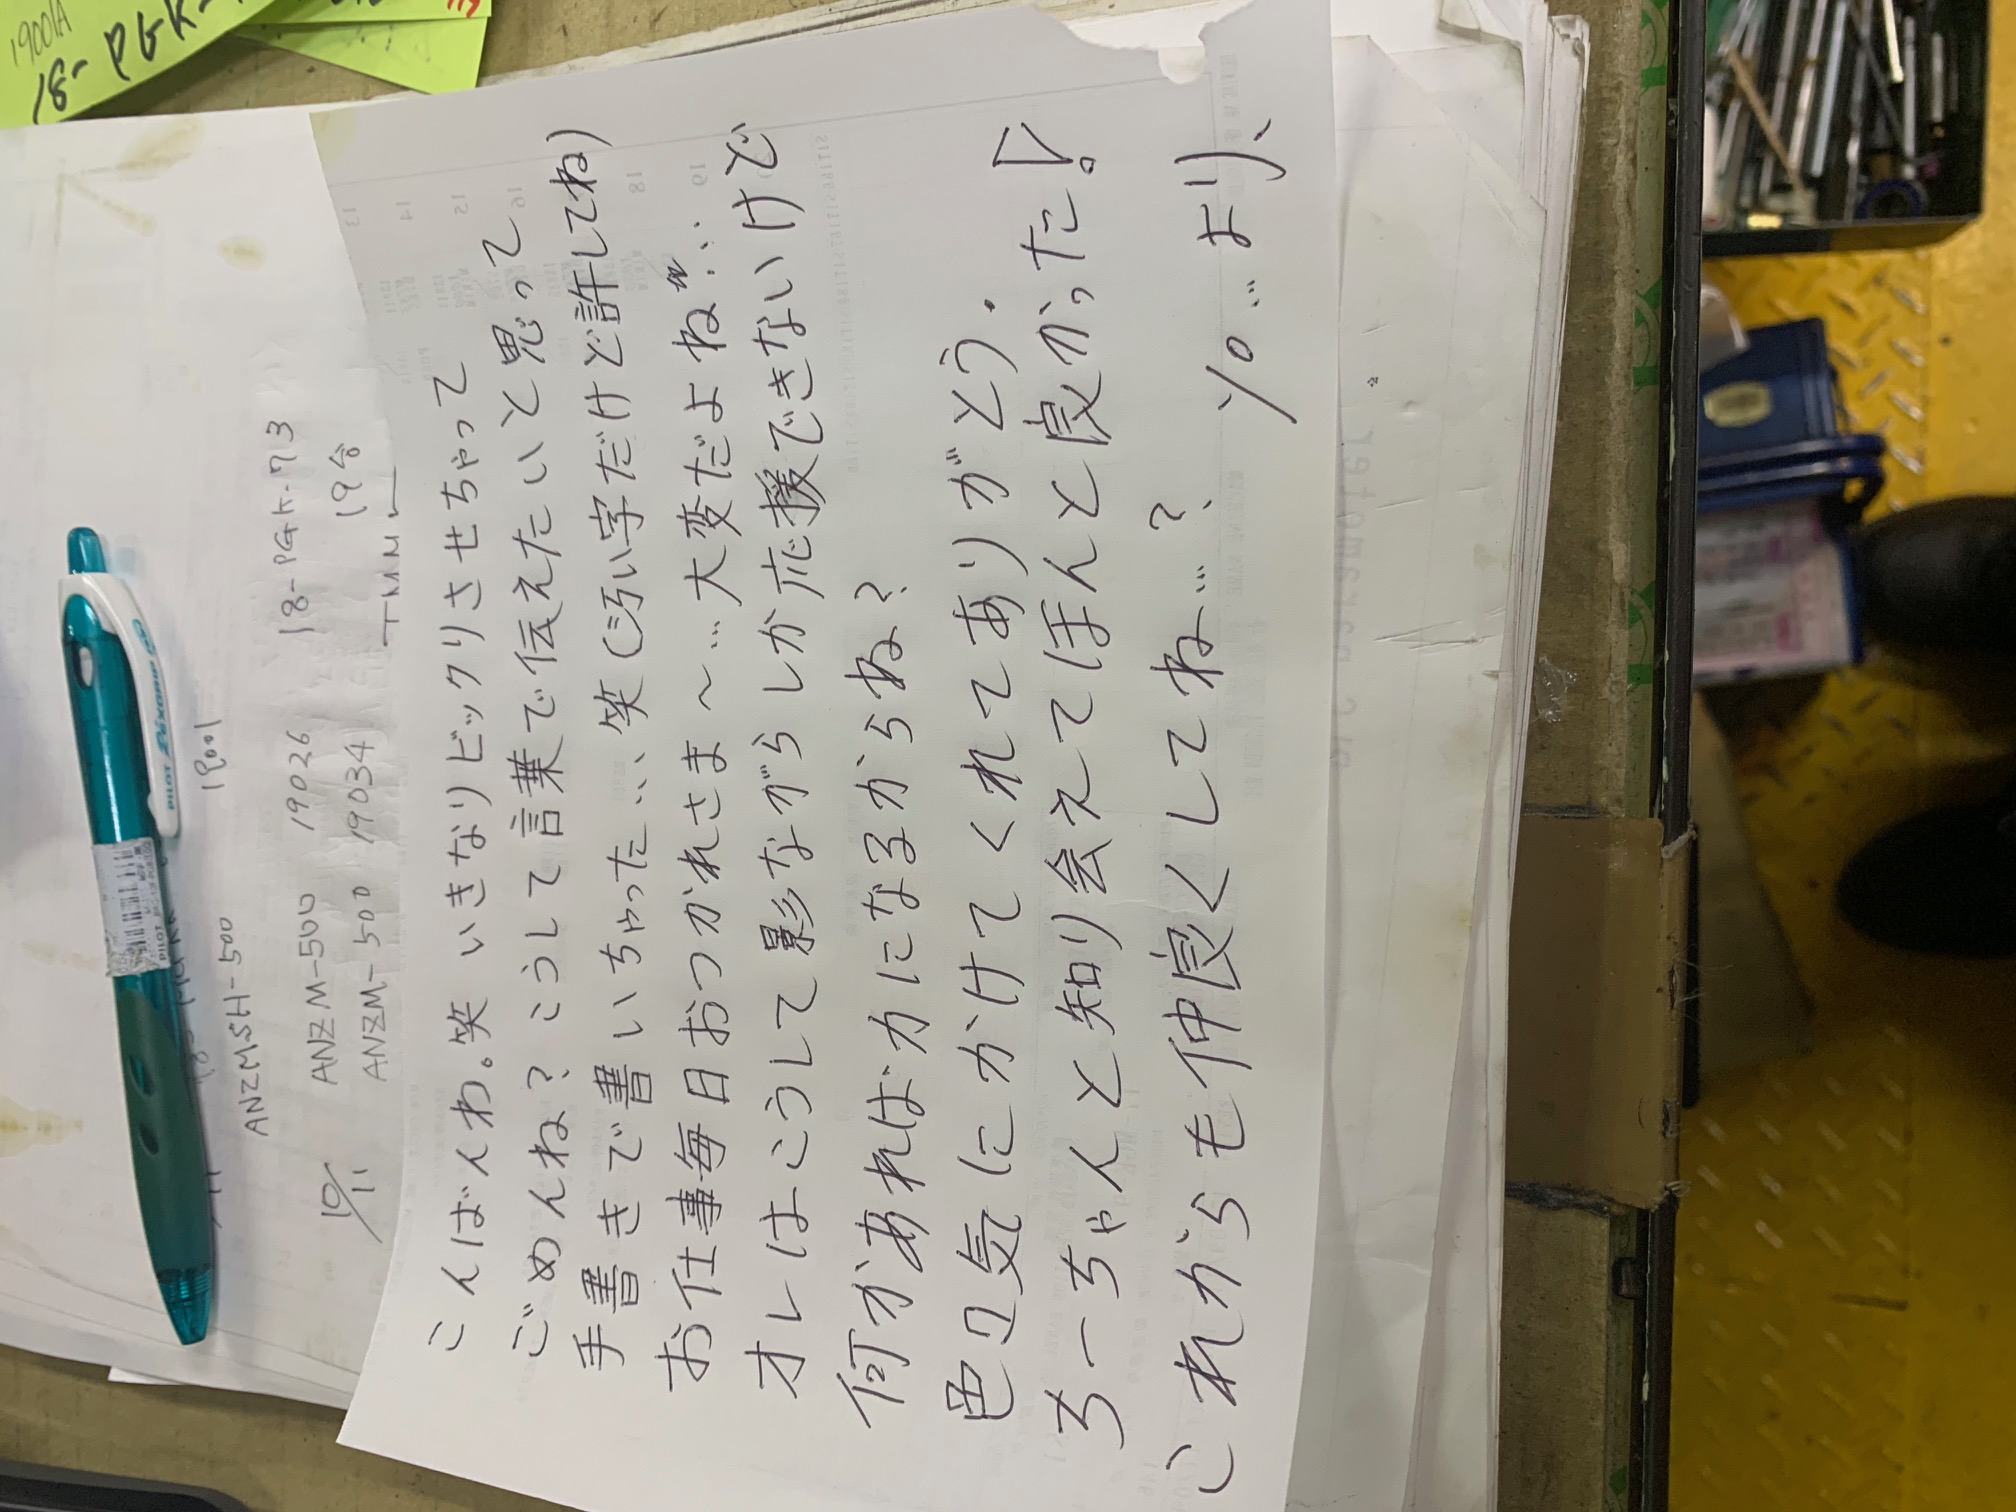 19001A
18-PGK-
PILOT Rexgrip
1Pool
ANZMSH-500
10/11
ANZM-500 19026 18-PGK-73
ANZM-500 19034 19台
TMML
こんばんわ。笑 いきなりビックリさせちゃって
ごめんね? こうして言葉で伝えたいと思って
手書きで書いちゃった、、、笑(汚い字だけど許してね)
お仕事毎日おつかれさま〜… 大変だよね…
オレはこうして影ながらしか応援できないけど
何かあれば力になるからね?
色々気にかけてくれてありがとう.
ちーちゃんと知り会えてほんと良かった!
これからも仲良くしてね…?
より、
13
14
15
16
18
19